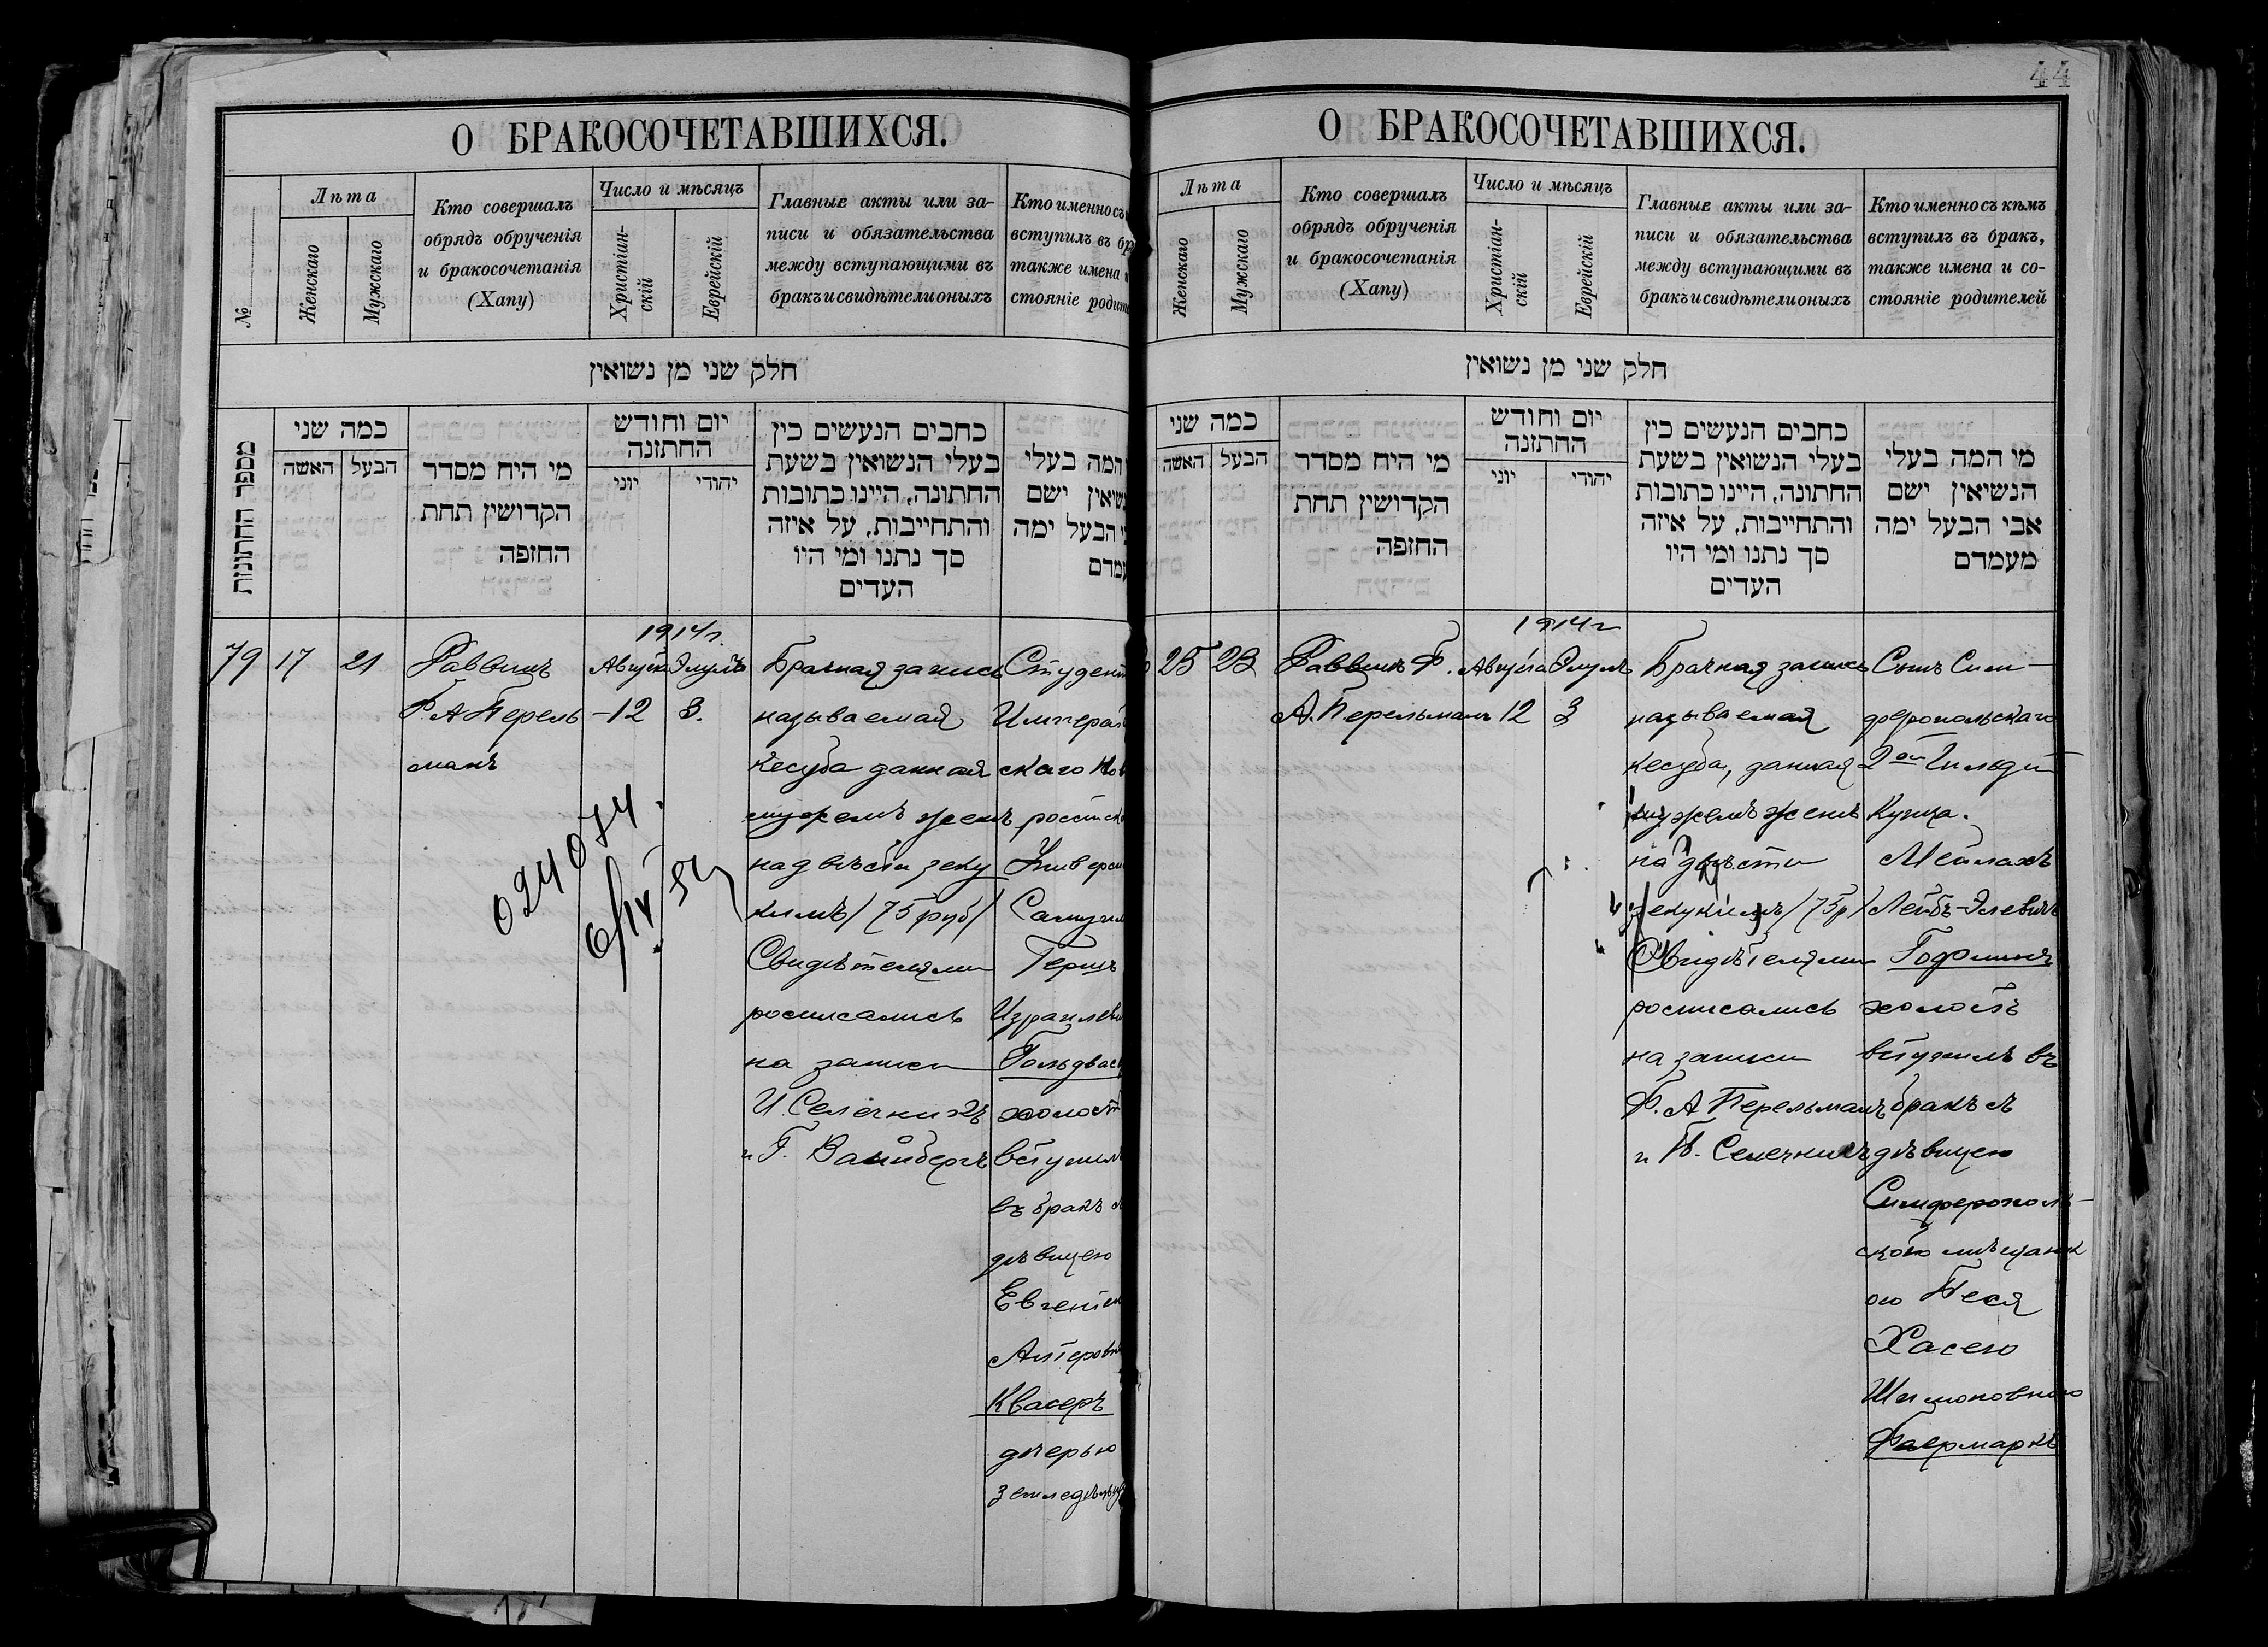 О БРАКОСОЧЕТАВШИХСЯ.
№
Лѣта
Женскаго
Мужскаго
Кто совершалъ
обрядъ обрученія
и бракосочетанія
(Хапу)
Число и мѣсяцъ
Христіан-
скій
Еврейскій
Главные акты или за-
писи и обязательства
между вступающими въ
бракъ и свидѣтели оныхъ
Кто именно съ
вступилъ въ бр
также имена и
стояніе родите
חלק שני מן נשואין
מספר החתונות
כמה שני
האשה
הבעל
מי היח מסדר
הקדושין תחת
החזפה
יום וחודש
החתזנה
יוני
יהודי
כחבים הנעשים כין
בעלי הנשואין בשעת
החתונה, היינו כתובות
והתחייבות, על איזה
סך נתנו ומי היו
העדים
המה בעלי
ישם
הבעל ימה
79
17
21
Раввинъ
Р. А Перель
манъ
1914г.
Августа
-12
Элулъ
3.
Брачная запись
называемая
кесуба данная
мужемъ женѣ
на двѣсти зеку
кимъ / 75 руб /
Свидѣтелями
росписались
на записи
И. Селечникъ
и Г. Вайнбергъ
Студент
Императ
скаго Нов
россійск
Универси
Самуил
Гершъ
Израилеви
Гольдвас
холост
вступилъ
въ бракъ с
дѣвицею
Евгеніею
Алтеровн
Квасеръ
дчерью
земледѣльц
024074.
6/IV 54
44
О БРАКОСОЧЕТАВШИХСЯ.
Лѣта
Женскаго
Мужскаго
Кто совершалъ
обрядъ обрученія
и бракосочетанія
(Хапу)
Число и мѣсяцъ
Христіан-
скій
Еврейскій
Главные акты или за-
писи и обязательства
между вступающими въ
бракъ и свидѣтели оныхъ
Кто именно съ кѣмъ
вступилъ въ бракъ,
также имена и со-
стояніе родителей
חלק שני מן נשואין
כמה שני
האשה
הבעל
מי היח מסדר
הקדושין תחת
החזפה
יום וחודש
החתזנה
יוני
יהודי
כחבים הנעשים כין
בעלי הנשואין בשעת
החתונה, היינו כתובות
והתחייבות, על איזה
סך נתנו ומי היו
העדים
מי המה בעלי
הנשיאין ישם
אבי הבעל ימה
מעמדם
25
23
Раввинъ Р.
А. Перельманъ
1914г
Августа
12
Элулъ
3
Брачная запись
называемая
кесуба, данная
мужемъ женѣ
на двѣсти
зекукимъ / 75р /
Свидѣтелями
росписались
на записи
Р. А Перельманъ
и И. Селечникъ
Сынъ Сим-
феропольскаго
2ой Гильдіи
Купца.
Мейлахъ
Лейбъ-Элевичъ
Гофманъ
холостъ
вступилъ въ
бракъ съ
дѣвицею
Симферополь-
скою мѣщанк
ою Песя
Хасею
Шимоновною
Фаермаркъ